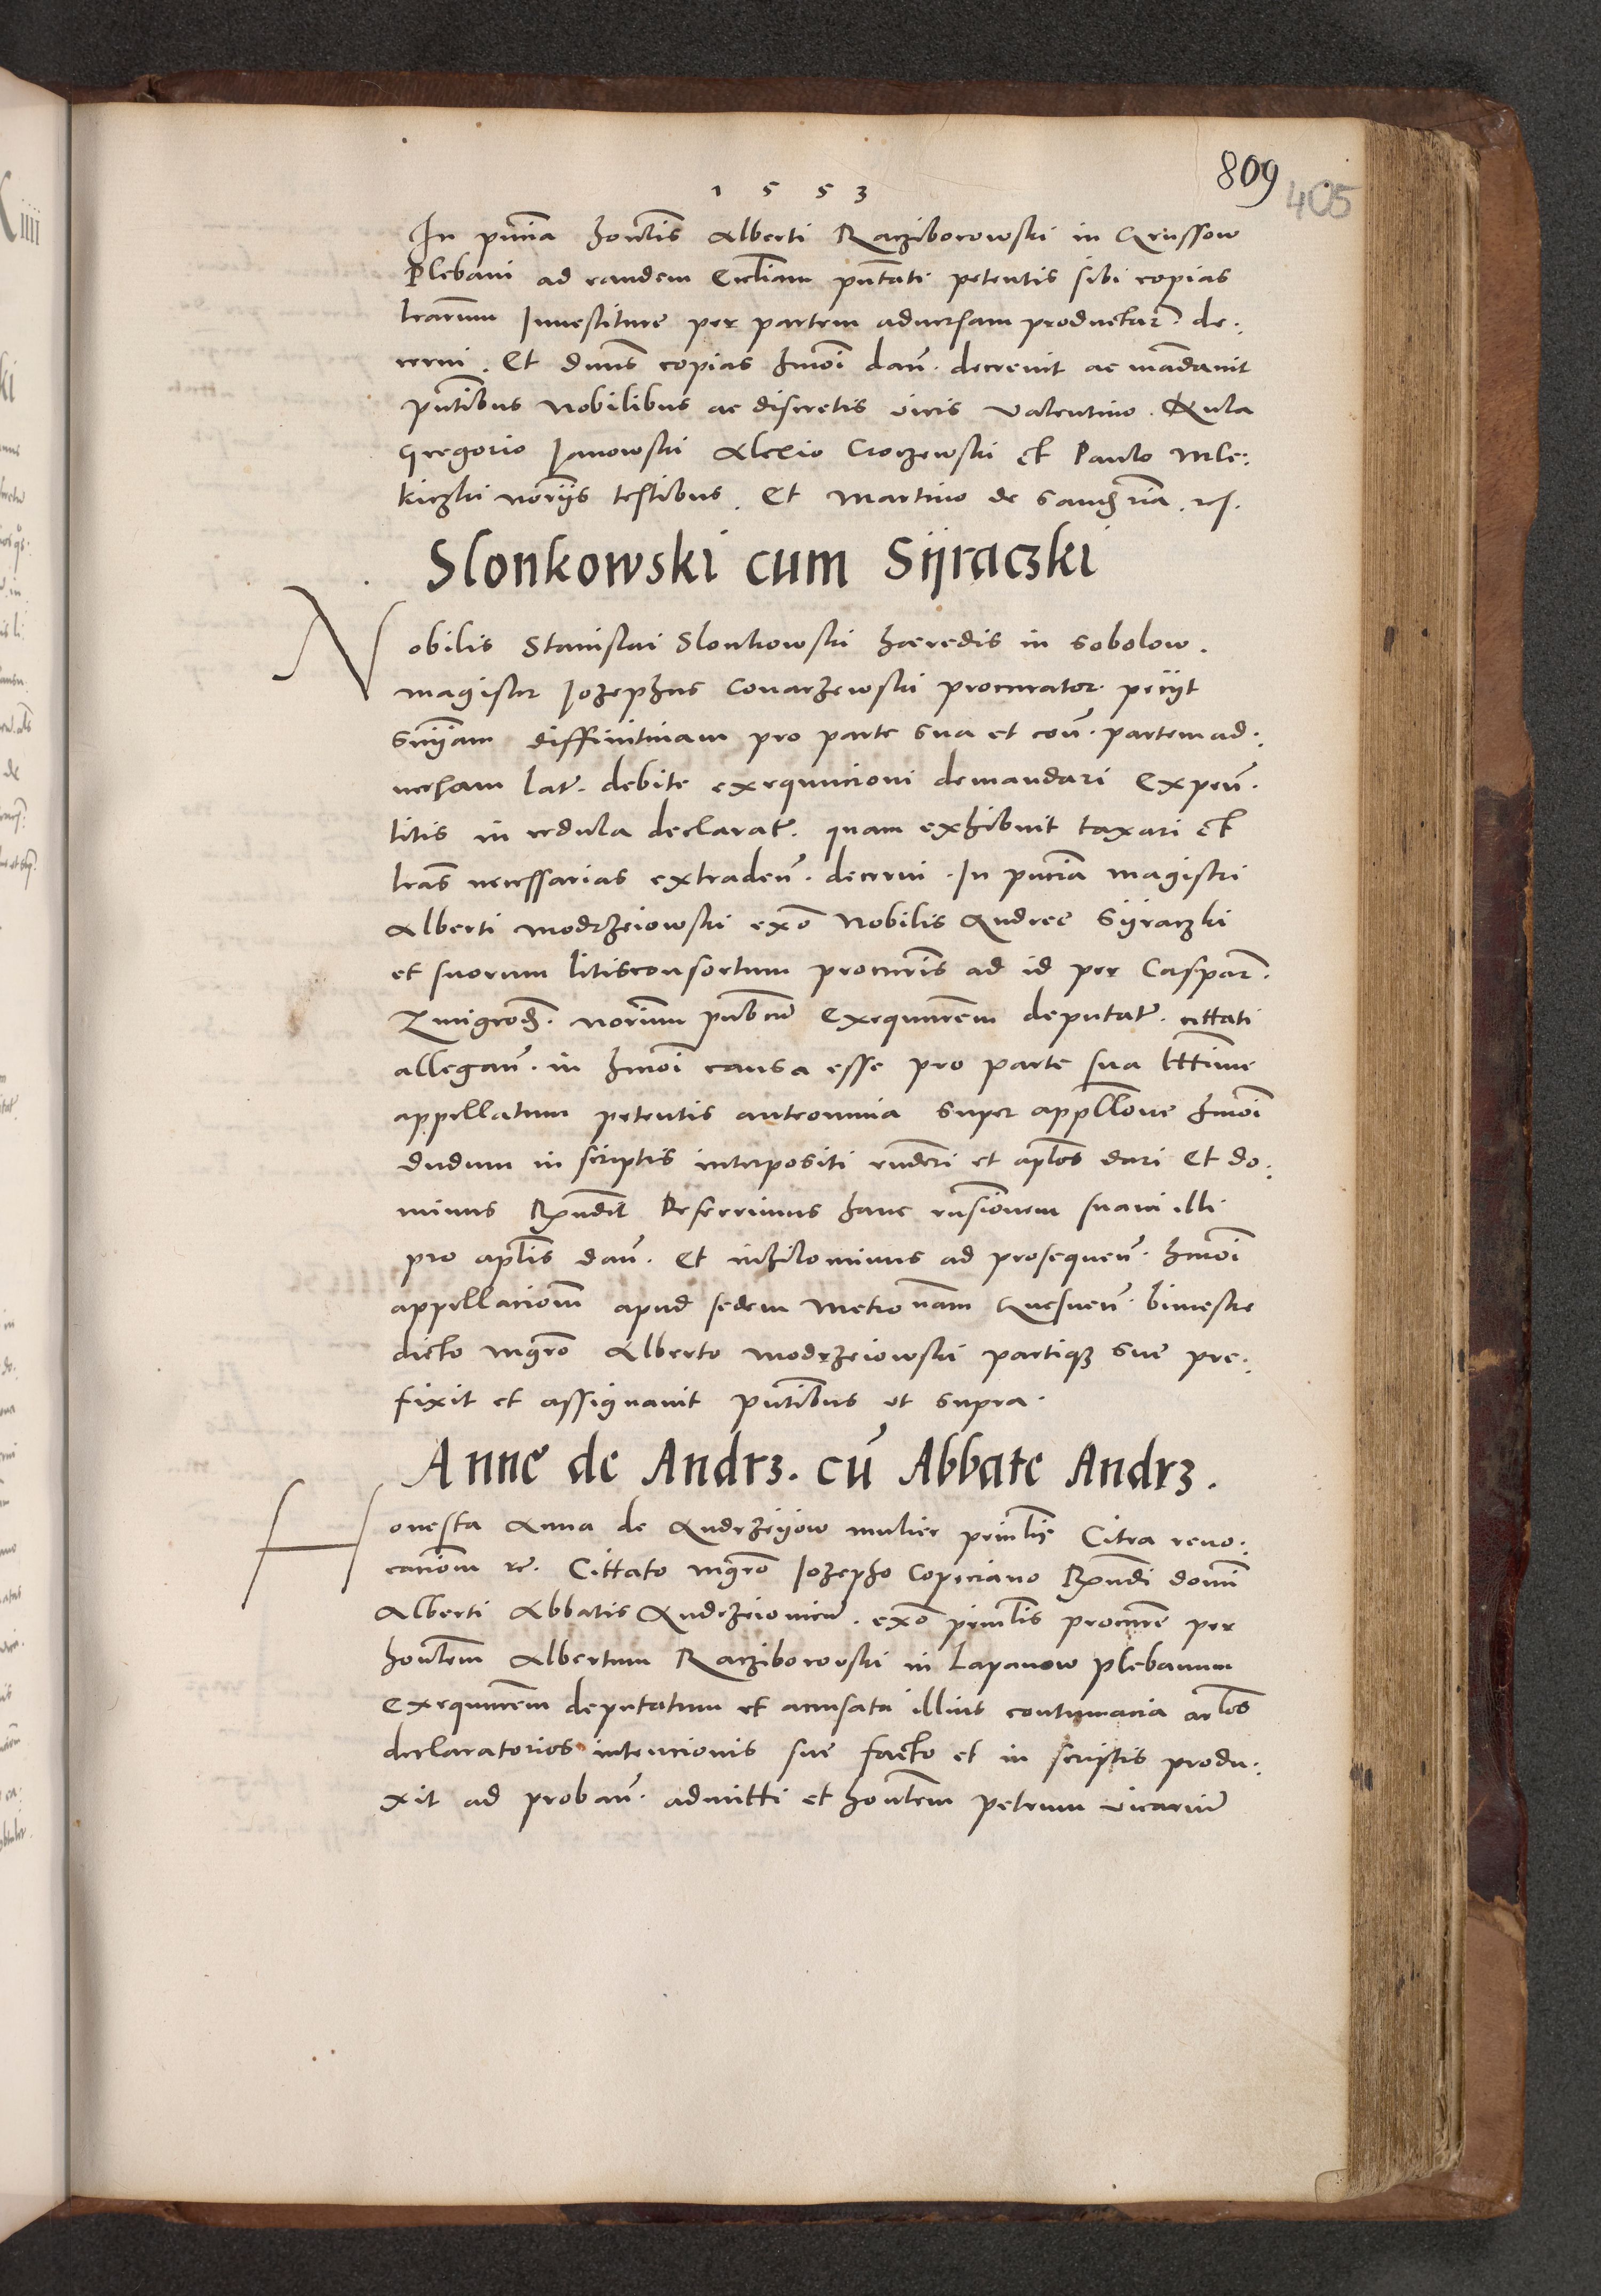 809
405
1553
In pn̄cia honlis Alberti Racziborowski in Grussow
Plebani ad eandem Eccliam pn̄tati petentis sibi copias
lrarum Inuestiture per partem aduersam productar. de:
cerni. Et dnus copias hmoi dan. decreuit ac mādauit
pntibus Nobilibus ac discretis viris Valentino. Kula
Gregorio Janowski Alexio Croczewski et Paulo Mle:
kiczki norijs testibus. Et Martino de
Slonkowski cum Sÿraczki
Nobilis Stanislai Slonkowski hæredis in Sobolow.
Magister Jozephus Conarzewski procurator. pecijt
Snīam diffinitiuam pro parte sua et con. partem ad:
uersam lat. debite exequucioni demandari Expen.
litis in cedula declarat. quam exhibuit taxari et
lras necessarias extraden. decerni. In pncia magistri
Alberti Modrzeiowski exo Nobilis Andree Sÿraczki
et suorum litisconsortum procuris ad id per Caspar.
Zmigrod. norium pubcū Exequurem deputat. cittati
allegan. in hmoi causa esse pro parte sua lttime
appellatum petentis anteomnia super appllone hmoi
dudum in scriptis interpositi rnderi et aplos dari Et do:
minus Rndit Referimus hanc rnsionem suam illi
pro aplis dan. Et nihilominus ad prosequen. hmoi
appellacionem apud sedem Metronam Gnesnen. bimestre
dicto mgro Alberto Modrzeiowski partiqz sue pre:
fixit et assignauit pntibus ut supra.
Anne de Andrz. cū Abbate Andrz.
Honesta Anna de Andrzeÿow mulier prinlis Citra reuo:
cacionem rc. Cittato mgro Jozepho Copiciano Rndi domi
Alberti Abbatis Andrzeiouien. exo prinlis procure per
honlem Albertum Racziborowski in Lapanow plebanum
Exequurem deputatum et accusata illius contumacia arlos
declaratorios intencionis sue facto et in scriptis produ:
xit ad proban. admitti et honlem Petrum vicariū